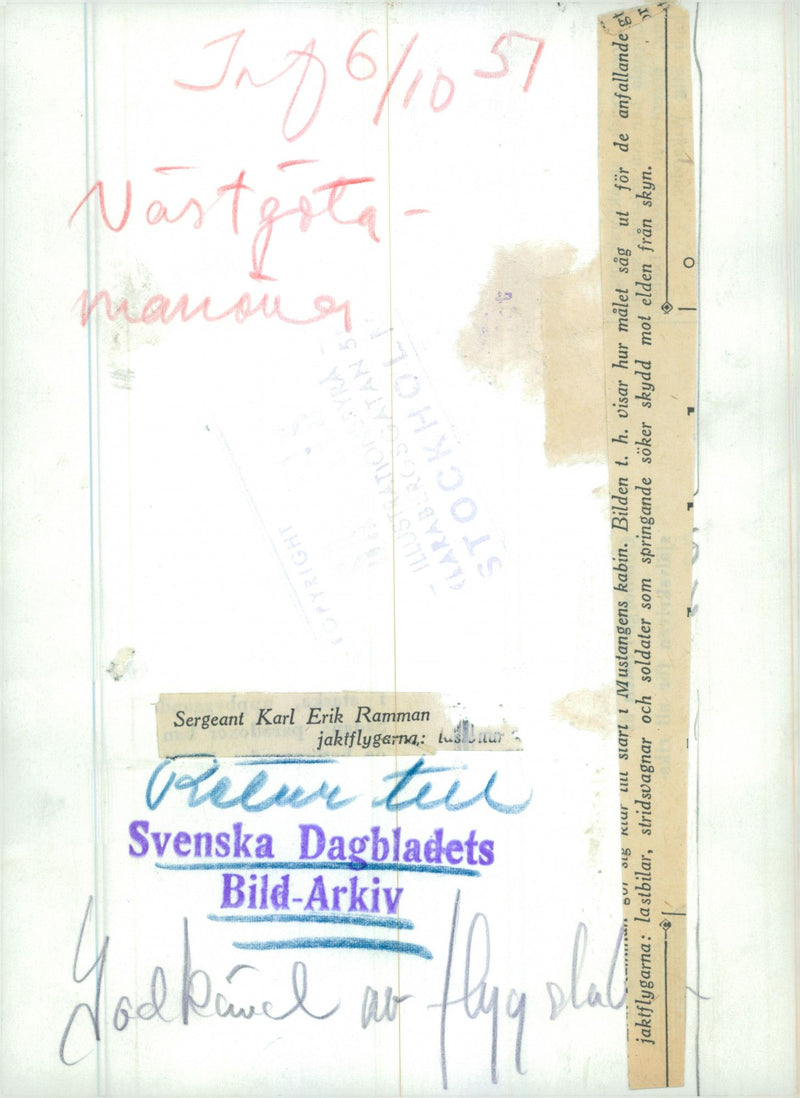 Inf 6/10 51
Västgöta-
manöver
COPYRIGHT
ILLUSTRATIONSBYRÅ
KLARABERGSGATAN 5
STOCKHOLM
Sergeant Karl Erik Ramman
jaktflygarna:
Retur till
Svenska Dagbladets
Bild-Arkiv
Godkänd av flygstab
gör sig klar till start i Mustangens kabin. Bilden t. h. visar hur målet såg ut för de anfallande
jaktflygarna: lastbilar, stridsvagnar och soldater som springande söker skydd mot elden från skyn.